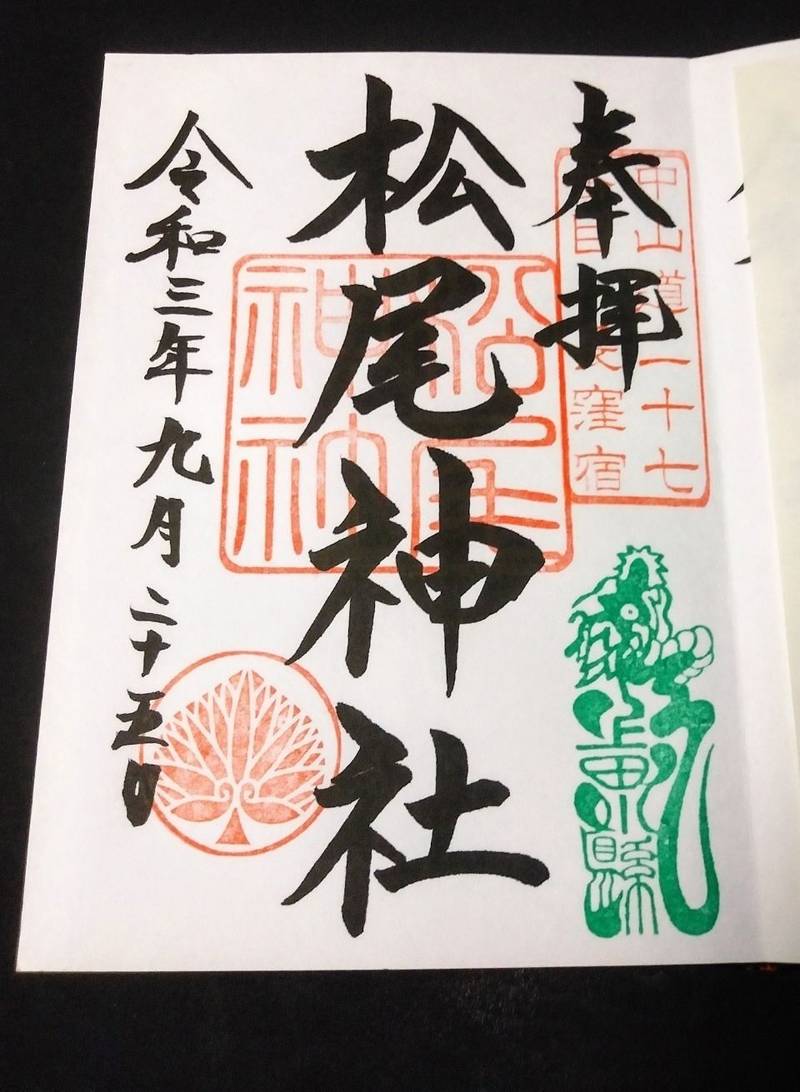 奉拝
中山道二十七
長窪宿
松尾神社
松尾神社
令和三年九月二十五日